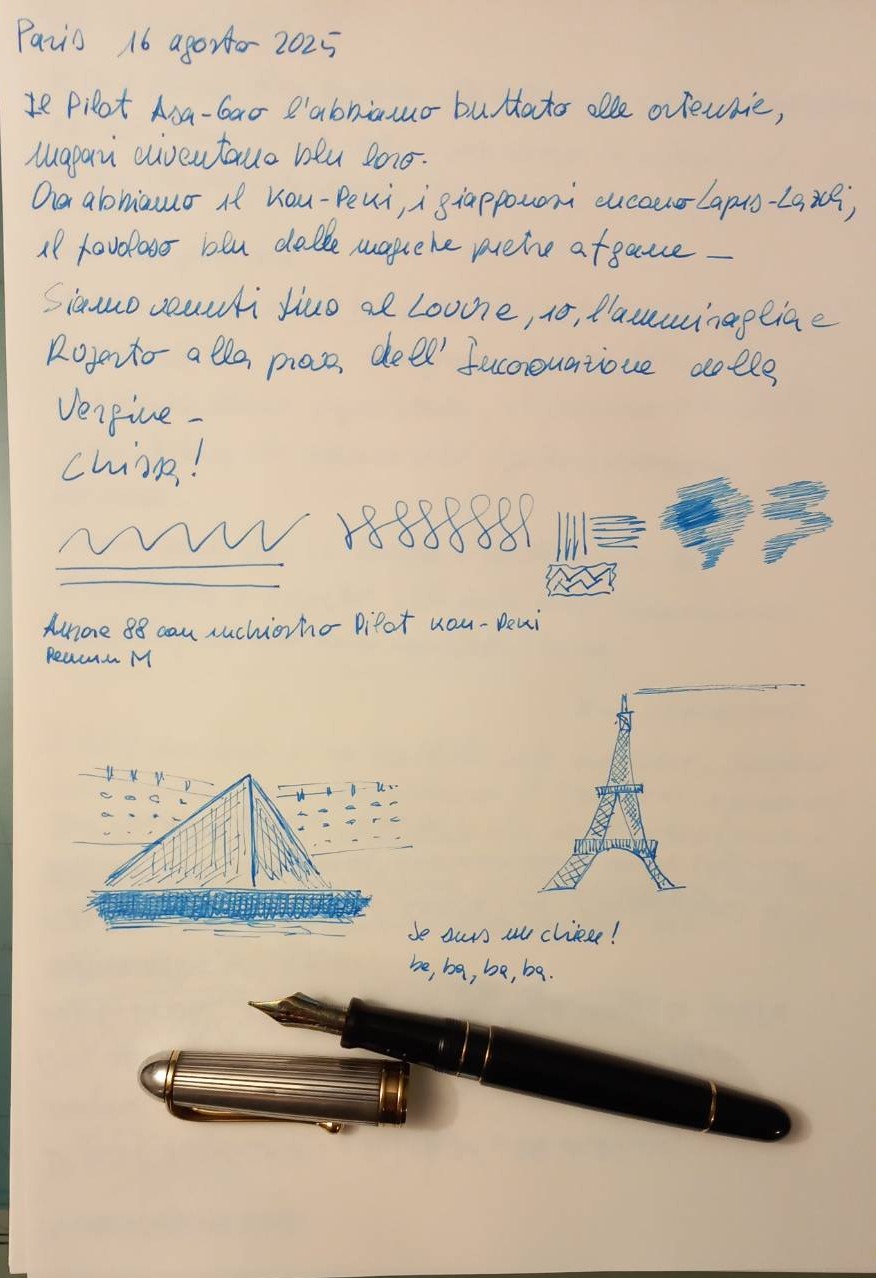 Paris 16 agosto 2025
Il Pilot Asa-Gao l'abbiamo buttato alle ortensie,
magari diventano blu loro.
Ora abbiamo il Kon-Peki, i giapponesi dicono Lapis-Lazuli,
il favoloso blu delle magiche pietre afgane -
Siamo venuti fino al Louvre, io, l'ammiraglia e
Roberto alla prova dell'Incoronazione della
Vergine -
Chissà!
Aurora 88 con inchiostro Pilot Kon-Peki
Pennino M
Je suis un chien!
ba, ba, ba, ba.